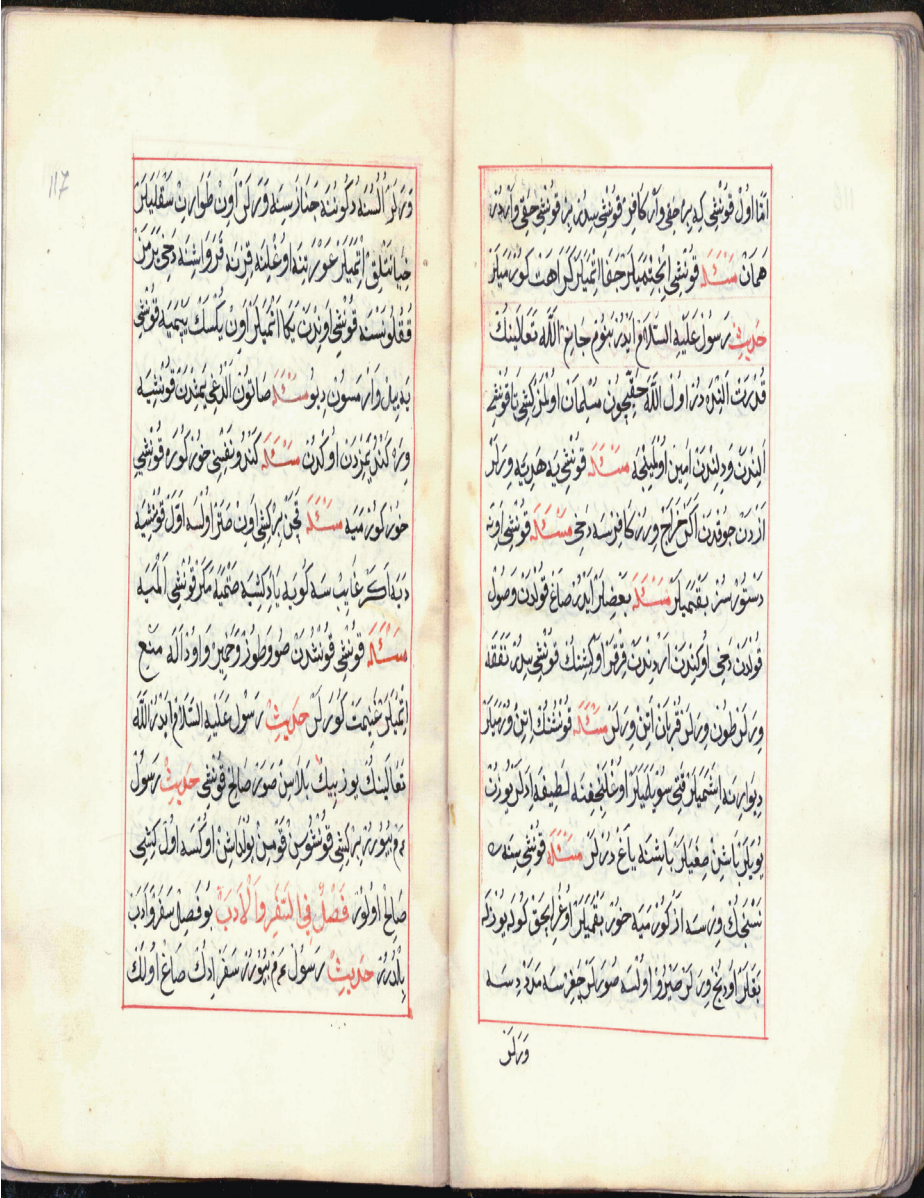 امّا اول قونشی که بر حقی وار کافر قونشی سیدر بر قونشی حقی واردر
همان مسئله قونشی انجتمیلر جفا اتمیلر کراهت کورمیلر
حدیث رسول علیه السلام ایدر بنوم جانم الله تعالینك
قدرت النده در اول الله حقیچون مسلمان اولمز کشی تا قونشی
الندن ودلندن امین اولمینجه مسئله قونشی یه هدیه ویرلر
ازدن چوقدن اکر خراج ویرر کافرسه دخی مسئله قونشی اوینه
دستورسز بقمیلر مسئله بعضلر ایدر صاغ قولدن وصول
قولدن دخی اوکندن اردندن قرقر اوکشینك قونشی سیدر نفقه
ویرلر طون ویرلر قربان اتین ویرلر مسئله قونشنك اتین ورمیلر
دیوارنه اشمیلر قتی سویلمیلر اوغلنجغنه لطیفه ادلر یوزن
یویلر باشن صغیلر باشنه یاغ درلر مسئله قونشی سنه
نسنجك ویرسه از کورمیه خور بقمیلر اوغرایجق کولر یوزله
بقلر اودنج ویرلر صیرو اولسه صورلر چغرسه مدد دسه
ورلر
117
ورلر السنه دکوننه جنازسه ورلر اون طوارین سقلیلر
خیانتلق اتمیلر عورتنه اوغلنه قزنه قرواشنه دخی یرمز
قونشی اوندن یکا اتمیلر اون یکسك یپمیه قونشی
یه ییل وارمسون دیو مسئله صاتون الدغی یمشدن قونشیه
وره کندو یمزدن اوکدن مسئله کندو نفسی خور کوره قونشی
خور کورمیه مسئله قچن بر کشی اون صتر اولسه اول قونشیه
دیه اکر غایب سه کویه یاد کشیه صتمیه مکر قونشی المیه
مسئله قونشی قونشدن صو وطوز وخمیر واوداله منع
اتمیلر غنیمت کورلر حدیث رسول علیه السلام ایدر الله
تعالینك یوز بیك بلاسن صور صالح قونشی حدیث رسول
عم بیورر بر کشی قونشوسن قومن یولداشن اوکسه اول کشی
صالح اولور فصل فی السفر والادب بو فصل سفر وادب
بلدرر حدیث رسول عم بیورر سفر ایدك صاغ اولك